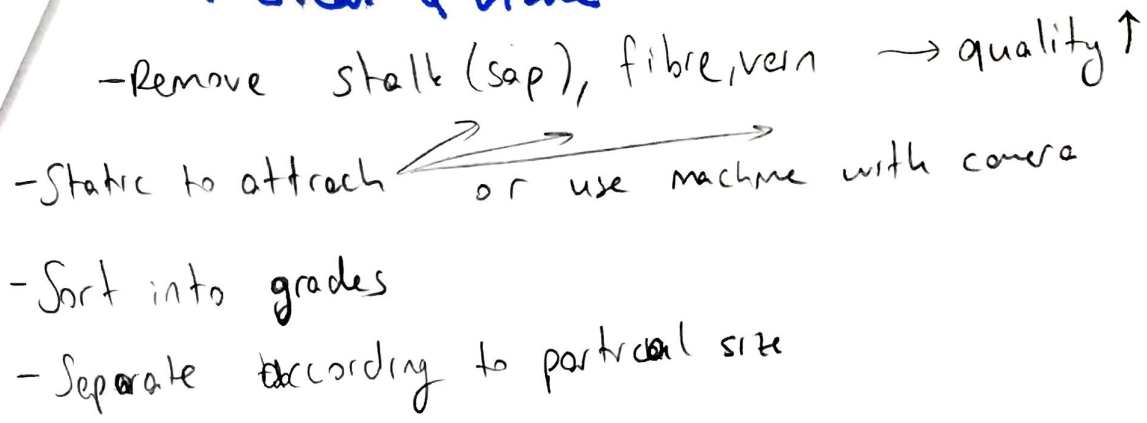 -Remove stalk (sap), fibre, vein → quality ↑
-Static to attach or use machine with camera
-Sort into grades
-Separate according to partical size